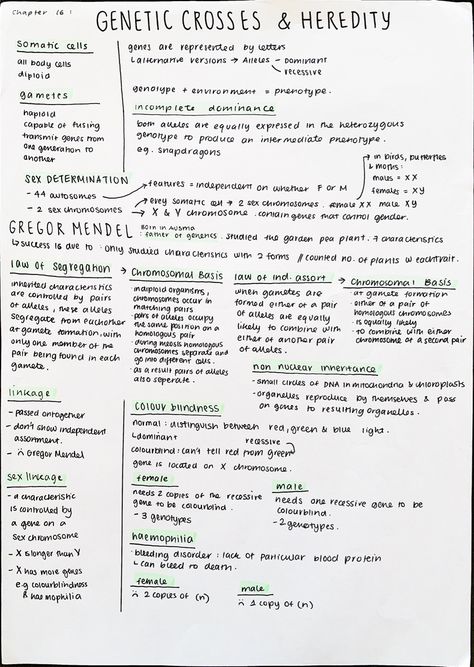 Chapter 16:
GENETIC CROSSES & HEREDITY
somatic cells
all body cells
diploid
gametes
haploid
capable of fusing
transmit genes from
one generation to
another
genes are represented by letters
↳ alternative versions → Alleles - dominant
recessive
genotype + environment = phenotype.
incomplete dominance
both alleles are equally expressed in the heterozygous
genotype to produce an intermediate phenotype.
eg. snapdragons
SEX DETERMINATION
- 44 autosomes
→ features = independent on whether F or M
- 2 sex chromosomes
→ every somatic cell → 2 sex chromosomes. female XX male XY
→ X & Y chromosome. contain genes that control gender.
→ in birds, butterflies
& moths:
males = XX
females = XY
GREGOR MENDEL
Born in Austria
: father of genetics. studied the garden pea plant. 7 characteristics
↳ success is due to: only studied characteristics with 2 forms // counted no. of plants w each trait.
law of segregation →
inherited characteristics
are controlled by pairs
of alleles, these alleles
segregate from eachother
at gamete formation. with
only one member of the
pair being found in each
gamete.
Chromosomal Basis
in diploid organisms,
chromosomes occur in
matching pairs
· pairs of alleles occupy
the same position on a
homologous pair
· during meiosis homologous
chromosomes separate and
go into different cells.
· as a result pairs of alleles
also seperate.
law of ind. assort →
when gametes are
formed either of a pair
of alleles are equally
likely to combine with
either of another pair
of alleles.
Chromosomal Basis
at gamete formation
· either of a pair of
homologous chromosomes
is equally likely
· to combine with either
chromosome of a second pair
non nuclear inheritance
- small circles of DNA in mitochondria & chloroplasts
- organelles reproduce by themselves & pass
on genes to resulting organelles.
linkage
- passed on together
- don't show independent
assortment.
- Gregor Mendel
sex linkage
- a characteristic
is controlled by
a gene on a
sex chromosome
- X is longer than Y
- X has more genes
e.g colourblindness
& haemophilia
colour blindness
normal: distinguish between red, green & blue light.
↳ dominant
recessive
colourblind: can't tell red from green
gene is located on X chromosome.
female
needs 2 copies of the recessive
gene to be colourblind.
- 3 genotypes
male
needs one recessive gene to be
colourblind.
- 2 genotypes.
haemophilia
· bleeding disorder: lack of particular blood protein
↳ can bleed to death.
female
2 copies of (n)
male
1 copy of (n)